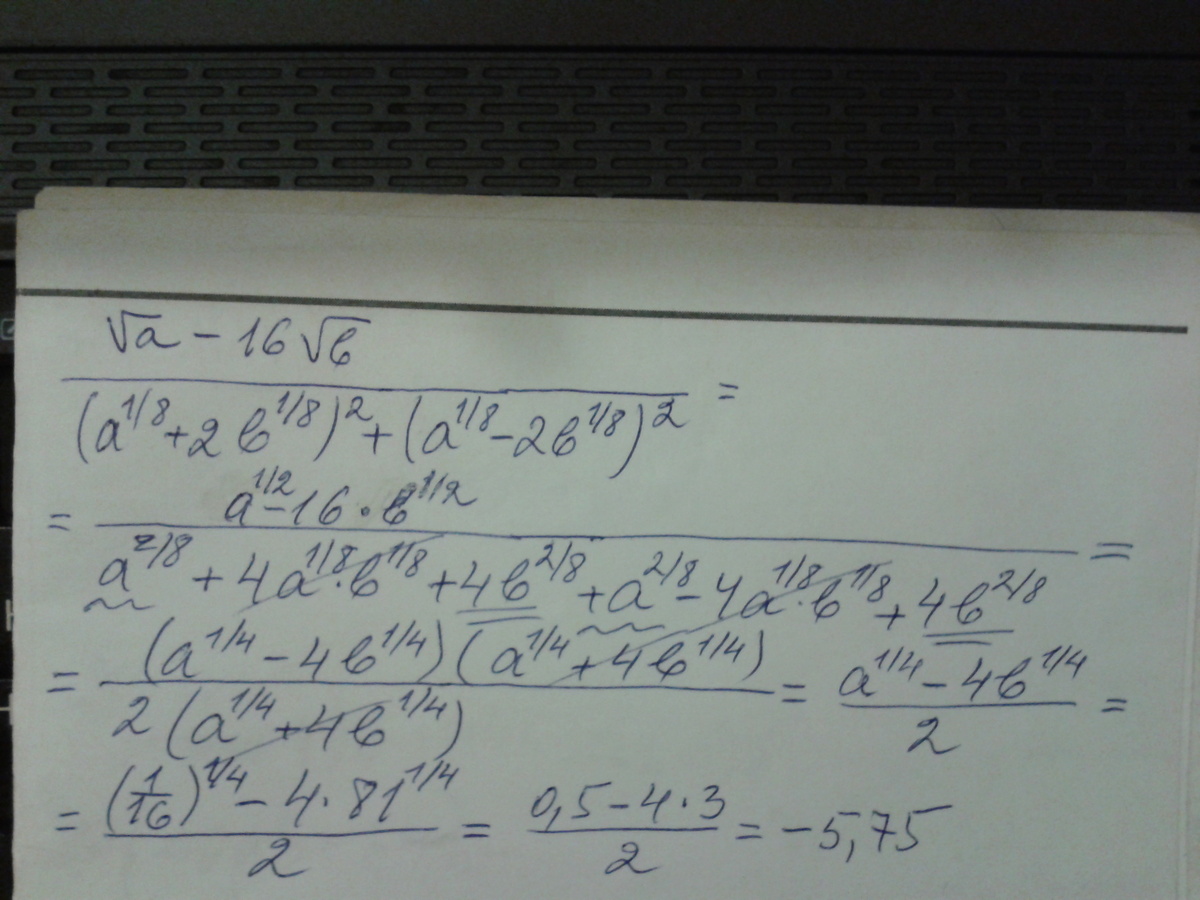 (√a − 16√b) / ((a^{1/8} + 2b^{1/8})^2 + (a^{1/8} − 2b^{1/8})^2) =
= (a^{1/2} − 16 · b^{1/2}) / (a^{2/8} + 4a^{1/8} · b^{1/8} + 4b^{2/8} + a^{2/8} − 4a^{1/8} · b^{1/8} + 4b^{2/8}) =
= ((a^{1/4} − 4b^{1/4})(a^{1/4} + 4b^{1/4})) / (2(a^{1/4} + 4b^{1/4})) = (a^{1/4} − 4b^{1/4}) / 2 =
= ((1/16)^{1/4} − 4 · 81^{1/4}) / 2 = (0,5 − 4 · 3) / 2 = −5,75